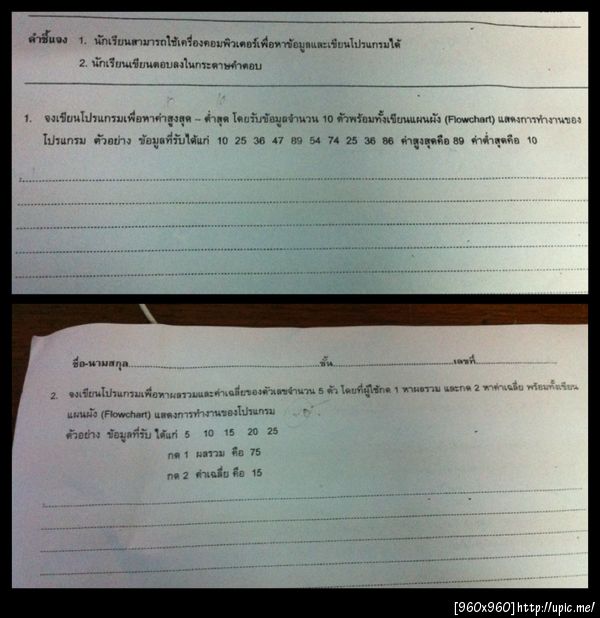 คำชี้แจง 1. นักเรียนสามารถใช้เครื่องคอมพิวเตอร์เพื่อหาข้อมูลและเขียนโปรแกรมได้
2. นักเรียนเขียนตอบลงในกระดาษคำตอบ
1. จงเขียนโปรแกรมเพื่อหาค่าสูงสุด – ต่ำสุด โดยรับข้อมูลจำนวน 10 ตัวพร้อมทั้งเขียนแผนผัง (Flowchart) แสดงการทำงานของ
โปรแกรม ตัวอย่าง ข้อมูลที่รับได้แก่ 10 25 36 47 89 54 74 25 36 86 ค่าสูงสุดคือ 89 ค่าต่ำสุดคือ 10
ชื่อ-นามสกุล ชั้น เลขที่
2. จงเขียนโปรแกรมเพื่อหาผลรวมและค่าเฉลี่ยของตัวเลขจำนวน 5 ตัว โดยที่ผู้ใช้กด 1 หาผลรวม และกด 2 หาค่าเฉลี่ย พร้อมทั้งเขียน
แผนผัง (Flowchart) แสดงการทำงานของโปรแกรม
ตัวอย่าง ข้อมูลที่รับ ได้แก่ 5 10 15 20 25
กด 1 ผลรวม คือ 75
กด 2 ค่าเฉลี่ย คือ 15
[960x960] http://upic.me/